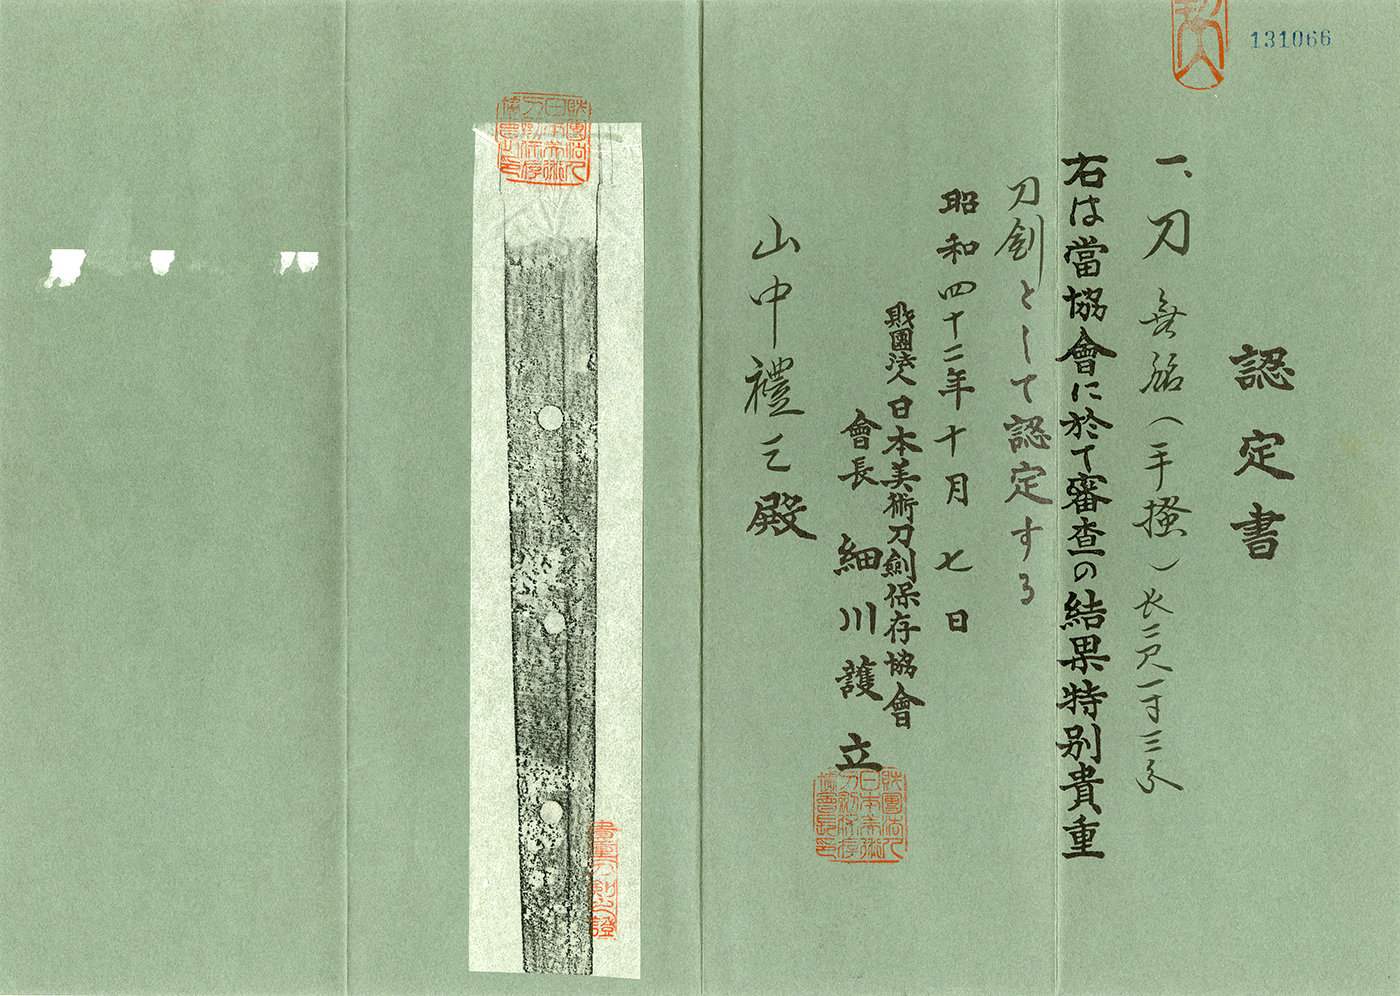 131066
認定書
一、刀 無銘(手掻)長二尺一寸三分
右は當協會に於て審査の結果特別貴重
刀剣として認定する
昭和四十二年十月七日
財團法人日本美術刀劍保存協會
會長 細川護立
山中禮三殿
財團法人日本美術刀劍保存協會長印
貴重刀剣之證